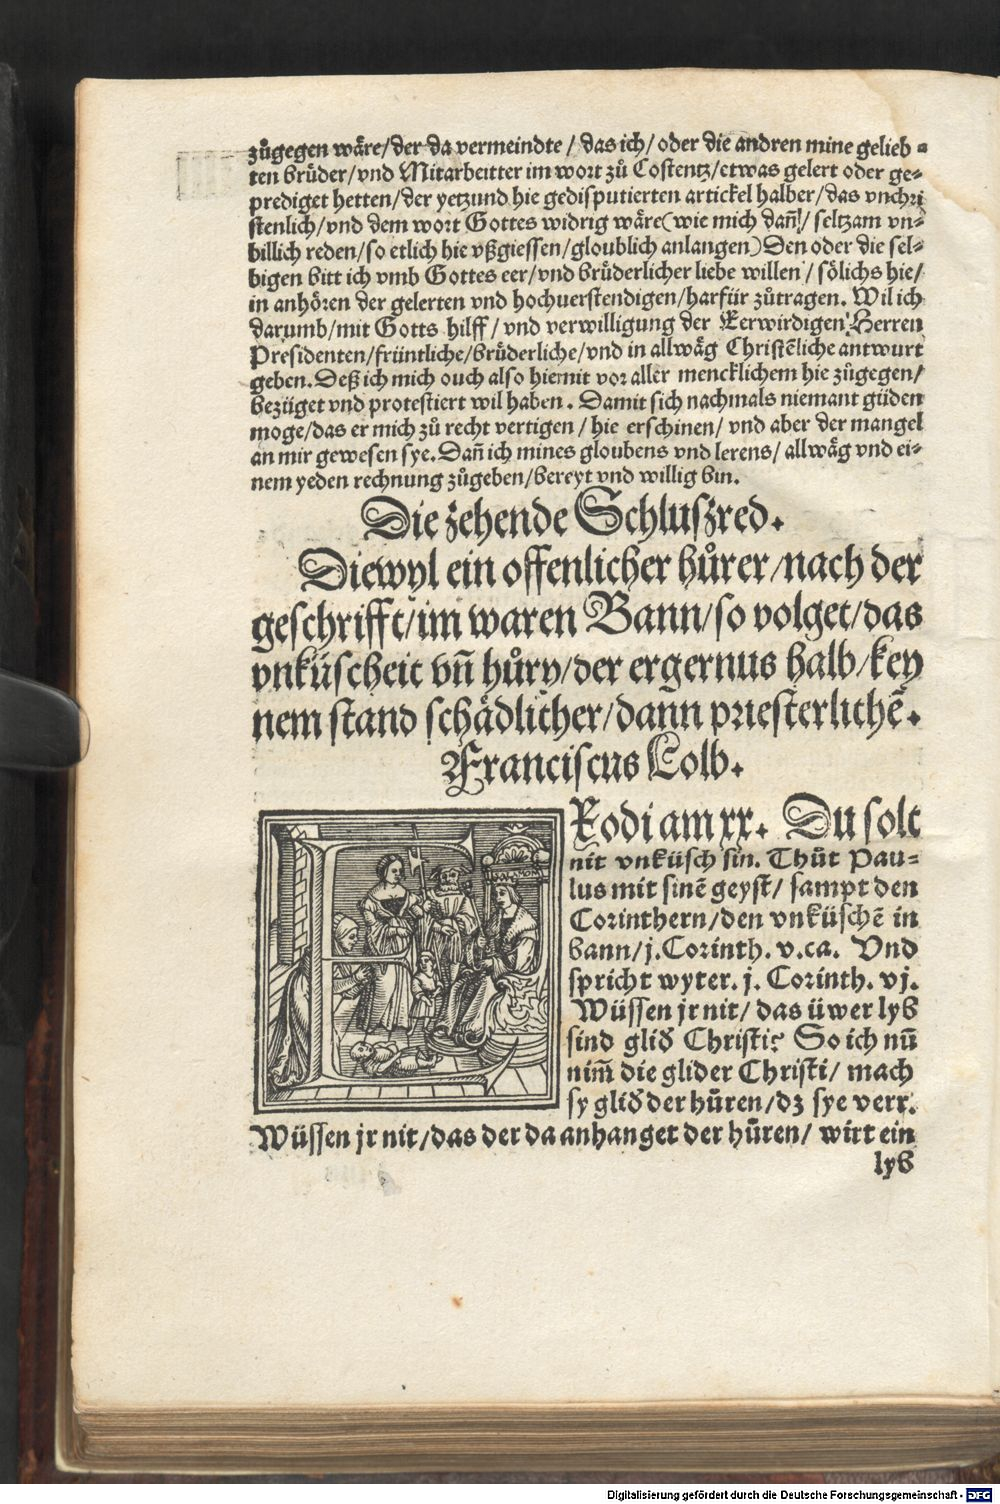 zůgegen wäre/der da vermeindte/das ich/oder die andren mine gelieb⸗
ten brüder/vnd Mitarbeitter im wort zů Costentz/etwas gelert oder ge⸗
prediget hetten/der yetzund hie gedisputierten artickel halber/das vnchri
stenlich/vnd dem wort Gottes widrig wäre(wie mich dañ/seltzam vn⸗
billich reden/so etlich hie vßgiessen/gloublich anlangen)Den oder die sel⸗
bigen bitt ich vmb Gottes eer/vnd brüderlicher liebe willen/sölichs hie/
in anhören der gelerten vnd hochuerstendigen/harfür zůtragen. Wil ich
darumb/mit Gotts hilff/vnd verwilligung der Eerwirdigen Herren
Presidenten/früntliche/brüderliche/vnd in allwäg Christēliche antwurt
geben. Deß ich mich ouch also hiemit vor aller mencklichem hie zůgegen/
bezüget vnd protestiert wil haben. Damit sich nachmals niemant güden
moge/das er mich zů recht vertigen/hie erschinen/vnd aber der mangel
an mir gewesen sye. Dañ ich mines gloubens vnd lerens/allwäg vnd ei⸗
nem yeden rechnung zůgeben/bereyt vnd willig bin.
Die zehende Schluszred.
Diewyl ein offenlicher hůrer/nach der
geschrifft/im waren Bann/so volget/das
vnküscheit vñ hůry/der ergernus halb/key
nem stand schådlicher/dann priesterlichē.
Franciscus Kolb.
EXodi am xx. Du solt
nit vnküsch sin. Thůt Pau⸗
lus mit sinē geyst/sampt den
Corinthern/den vnküschē in
bann/j.Corinth. v.ca. Vnd
spricht wyter. j. Corinth. vj.
Wüssen jr nit/das üwer lyb
sind glid Christi? So ich nũ
nim̃ die glider Christi/mach
sy glid der hůren/dz sye verr.
Wüssen jr nit/das der da anhanget der hůren/wirt ein
lyb
Digitalisierung gefördert durch die Deutsche Forschungsgemeinschaft - DFG